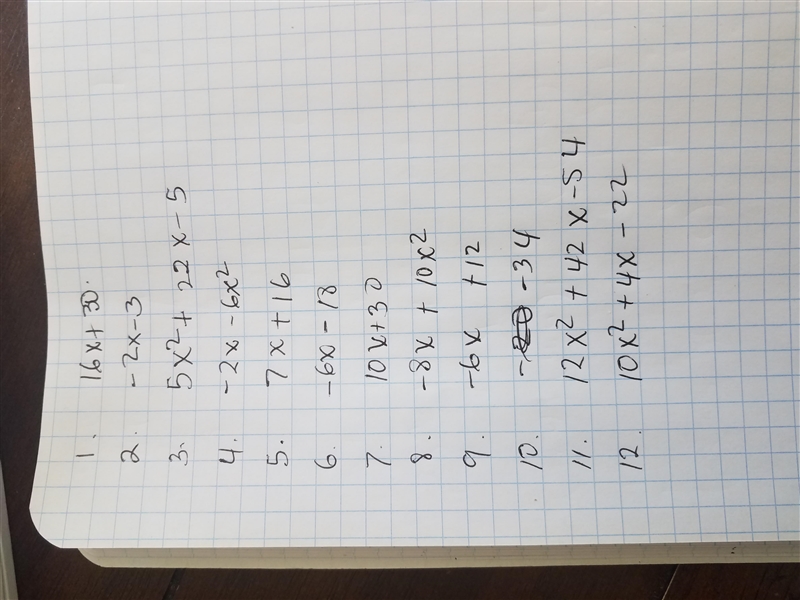 1. 16x+30.
2. -2x-3
3. 5x²+ 22x-5
4. -2x-6x²
5. 7x+16
6. -6x-18
7. 10x+30
8. -8x + 10x²
9. -6x +12
10. -34
11. 12x² +42x-54
12. 10x²+4x-22